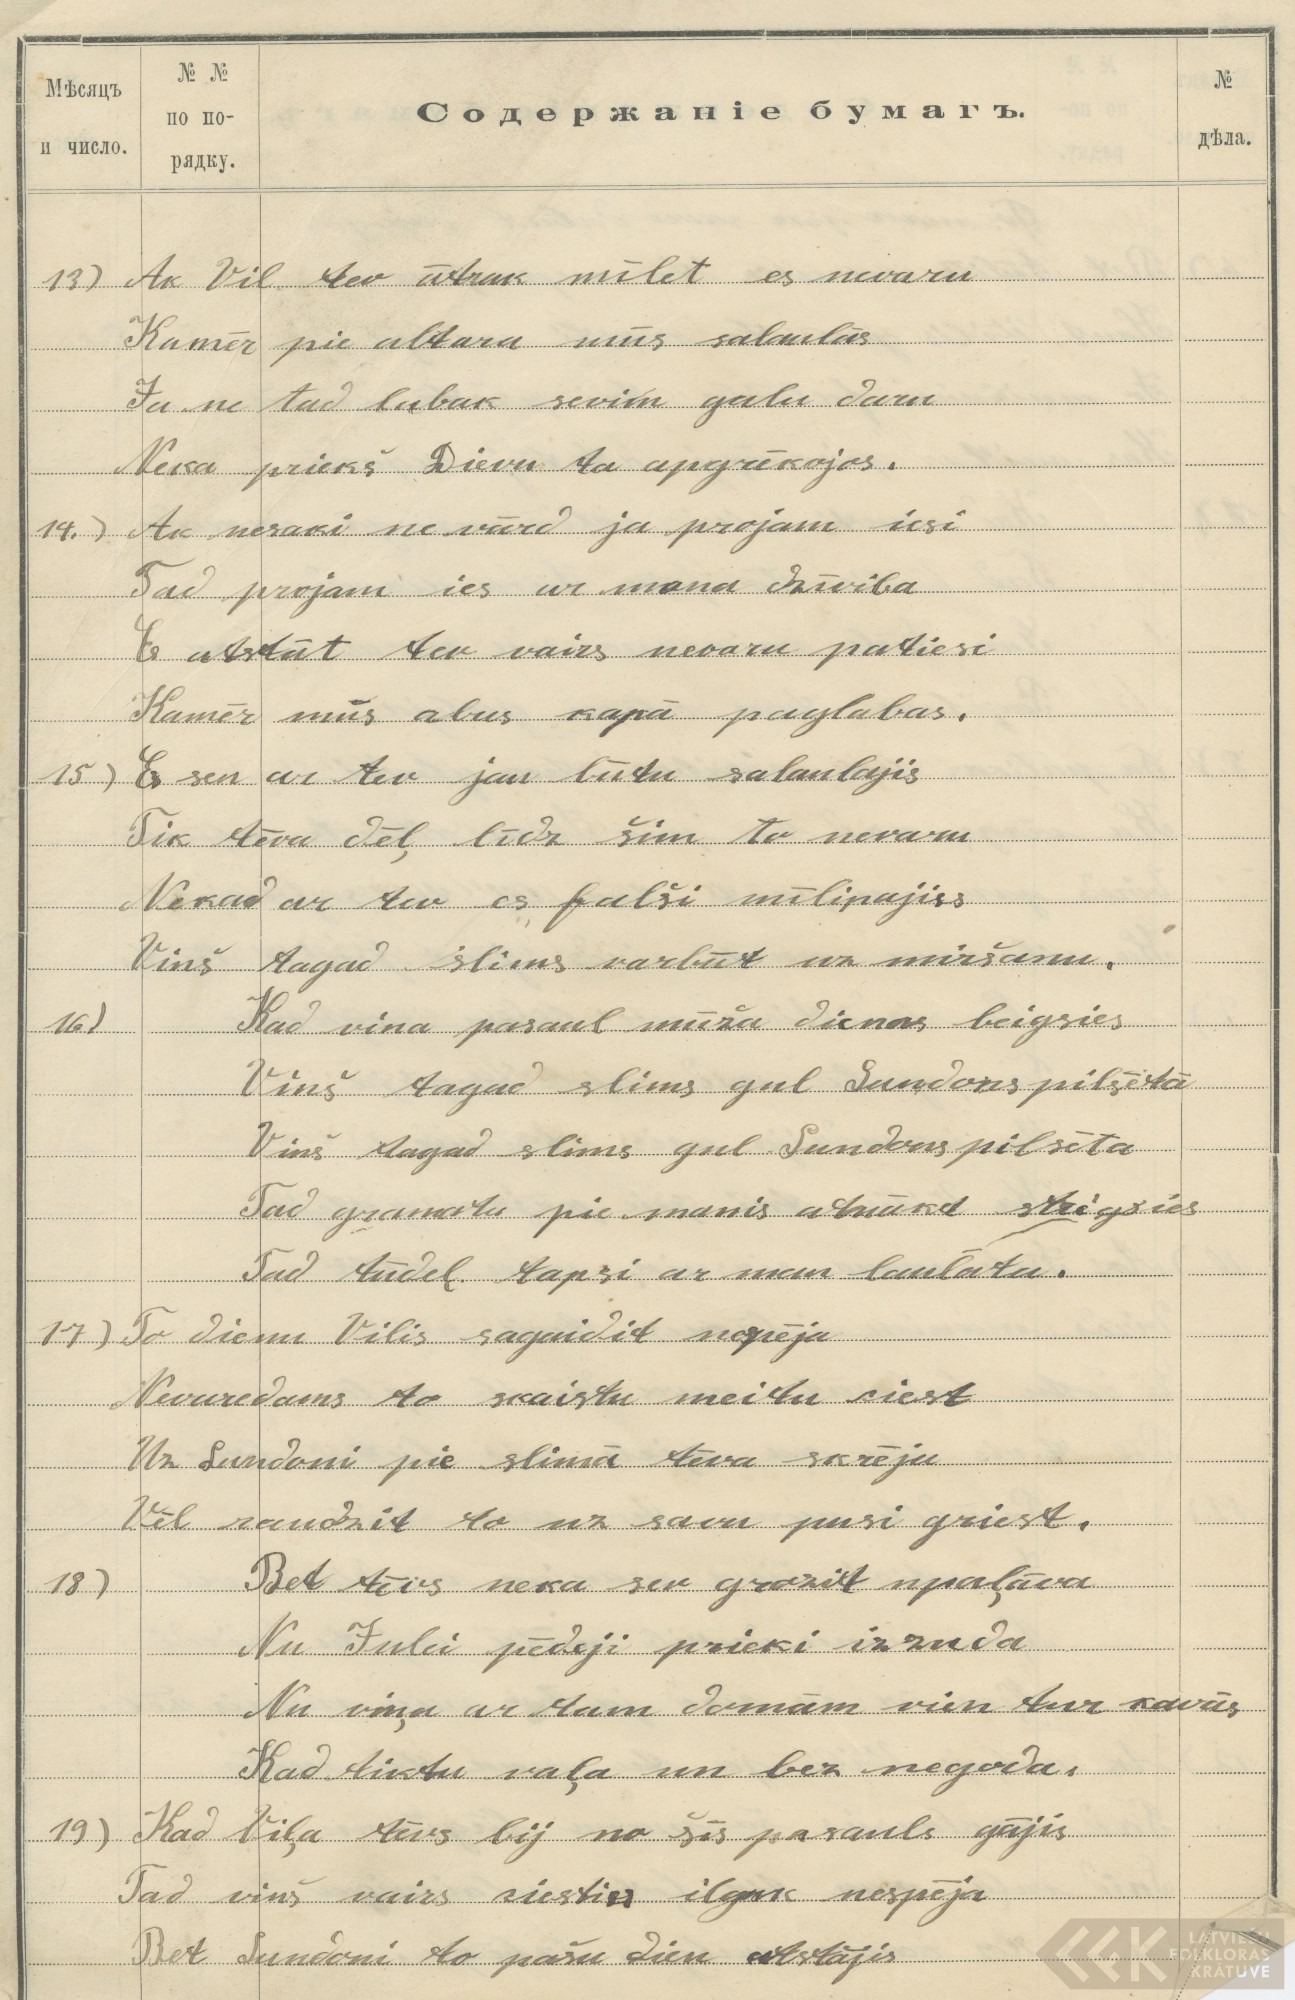 Мѣсяцъ и число.
№ № по по-рядку.
Содержаніе бумагъ.
№ дѣла.
13) Ak Vil tev ātrak mīlet es nevaru
Kamēr pie altara mūs salaulās
Ja ne tad labak sevim galu daru
Neka priekš Dievu ta apgrēkojos.
14.) Ak nesaki ne vārd ja projam iesi
Tad projam ies ar mana dzīviba
Es atstāt tev vairs nevaru patiesi
Kamēr mūs abus kapā paglabas.
15) Es sen ar tev jau būtu salaulajis
Tik tēva dēļ līdz šim to nevaru
Nekad ar tev es falši mīlinajies
Vinš tagad slims varbūt uz miršanu.
16) Kad vina pasaul mūža dienas beigsies
Vinš tagad slims gul Lundons pilsētā
Vinš tagad slims gul Lundons pilsēta
Tad gramatu pie manis atnākt steigsies
Tad tūdeļ tapsi ar man laulāta.
17) To dienu Vilis sagaidit nespēja
Nevaredams to skaistu meitu ciest
Uz Lundoni pie slimā tēva skrēja
Vēl raudzit to uz savu pusi griest.
18) Bet tēvs neka sev grozit npaļāva
Nu Julei pēdeji prieki izzuda
Nu viņa ar tam domām vien tur kavās
Kad tiktu vaļa un bez negoda.
19) Kad Viļa tēvs bij no šīs pasauls gājis
Tad vinš vairs ciesties ilgak nespēja
Bet Lundoni to pašu dien atstājis
LATVIEŠU
FOLKLORAS
KRĀTUVE